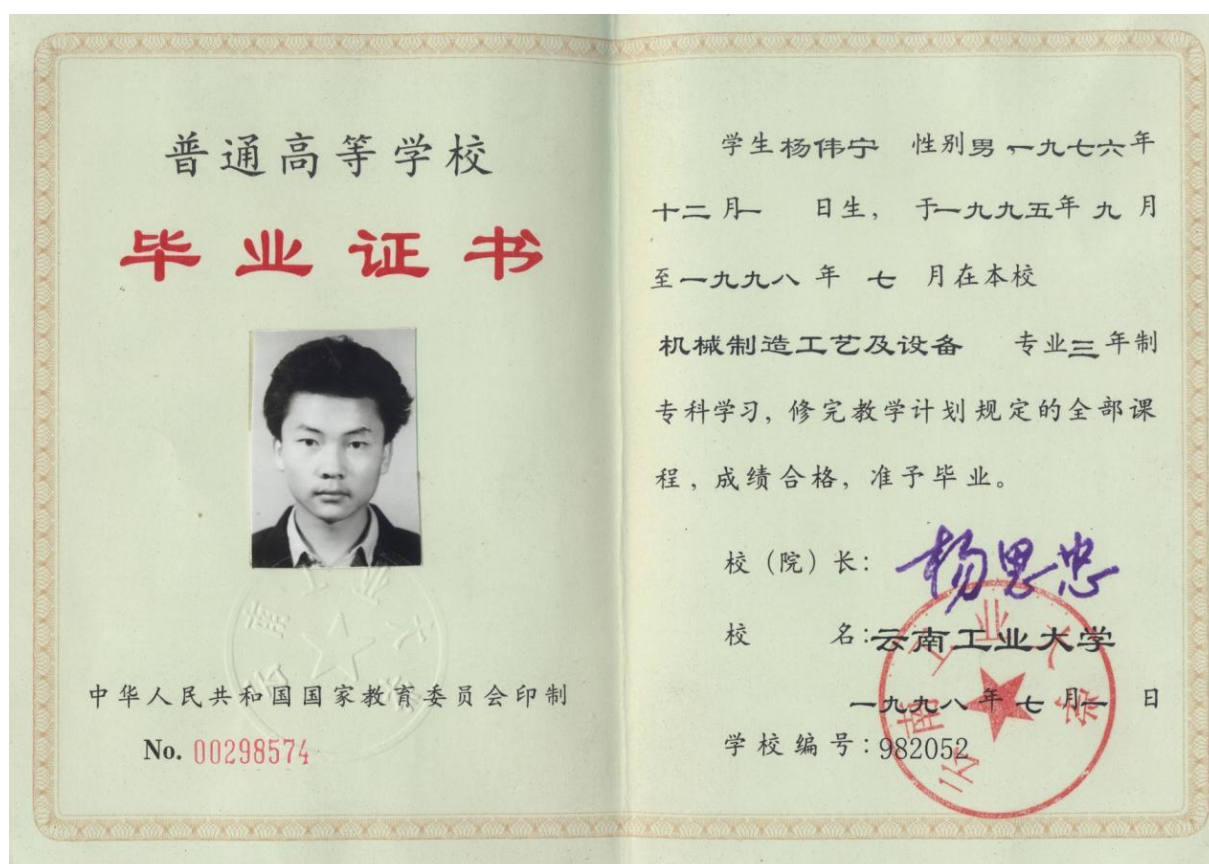 普通高等学校
毕业证书
中华人民共和国国家教育委员会印制
No. 00298574
学生杨伟宁 性别男、一九七六年
十二月一 日生, 于一九九五年 九 月
至一九九八 年 七 月在本校
机械制造工艺及设备 专业三年制
专科学习, 修完教学计划规定的全部课
程, 成绩合格, 准予毕业。
校(院)长: 杨思忠
校 名: 云南工业大学
一九九八年七月一 日
学校编号: 982052
云南工业大学
云南工业大学